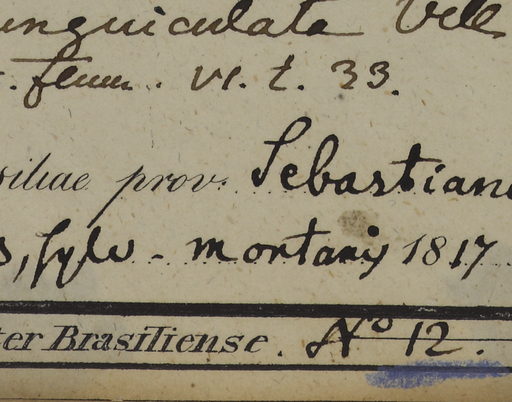 unguiculata Vell
. flum. VI. t. 33.
siliae prov. Sebastiano
s, sylv. montanis 1817
ter Brasiliense. No 12.